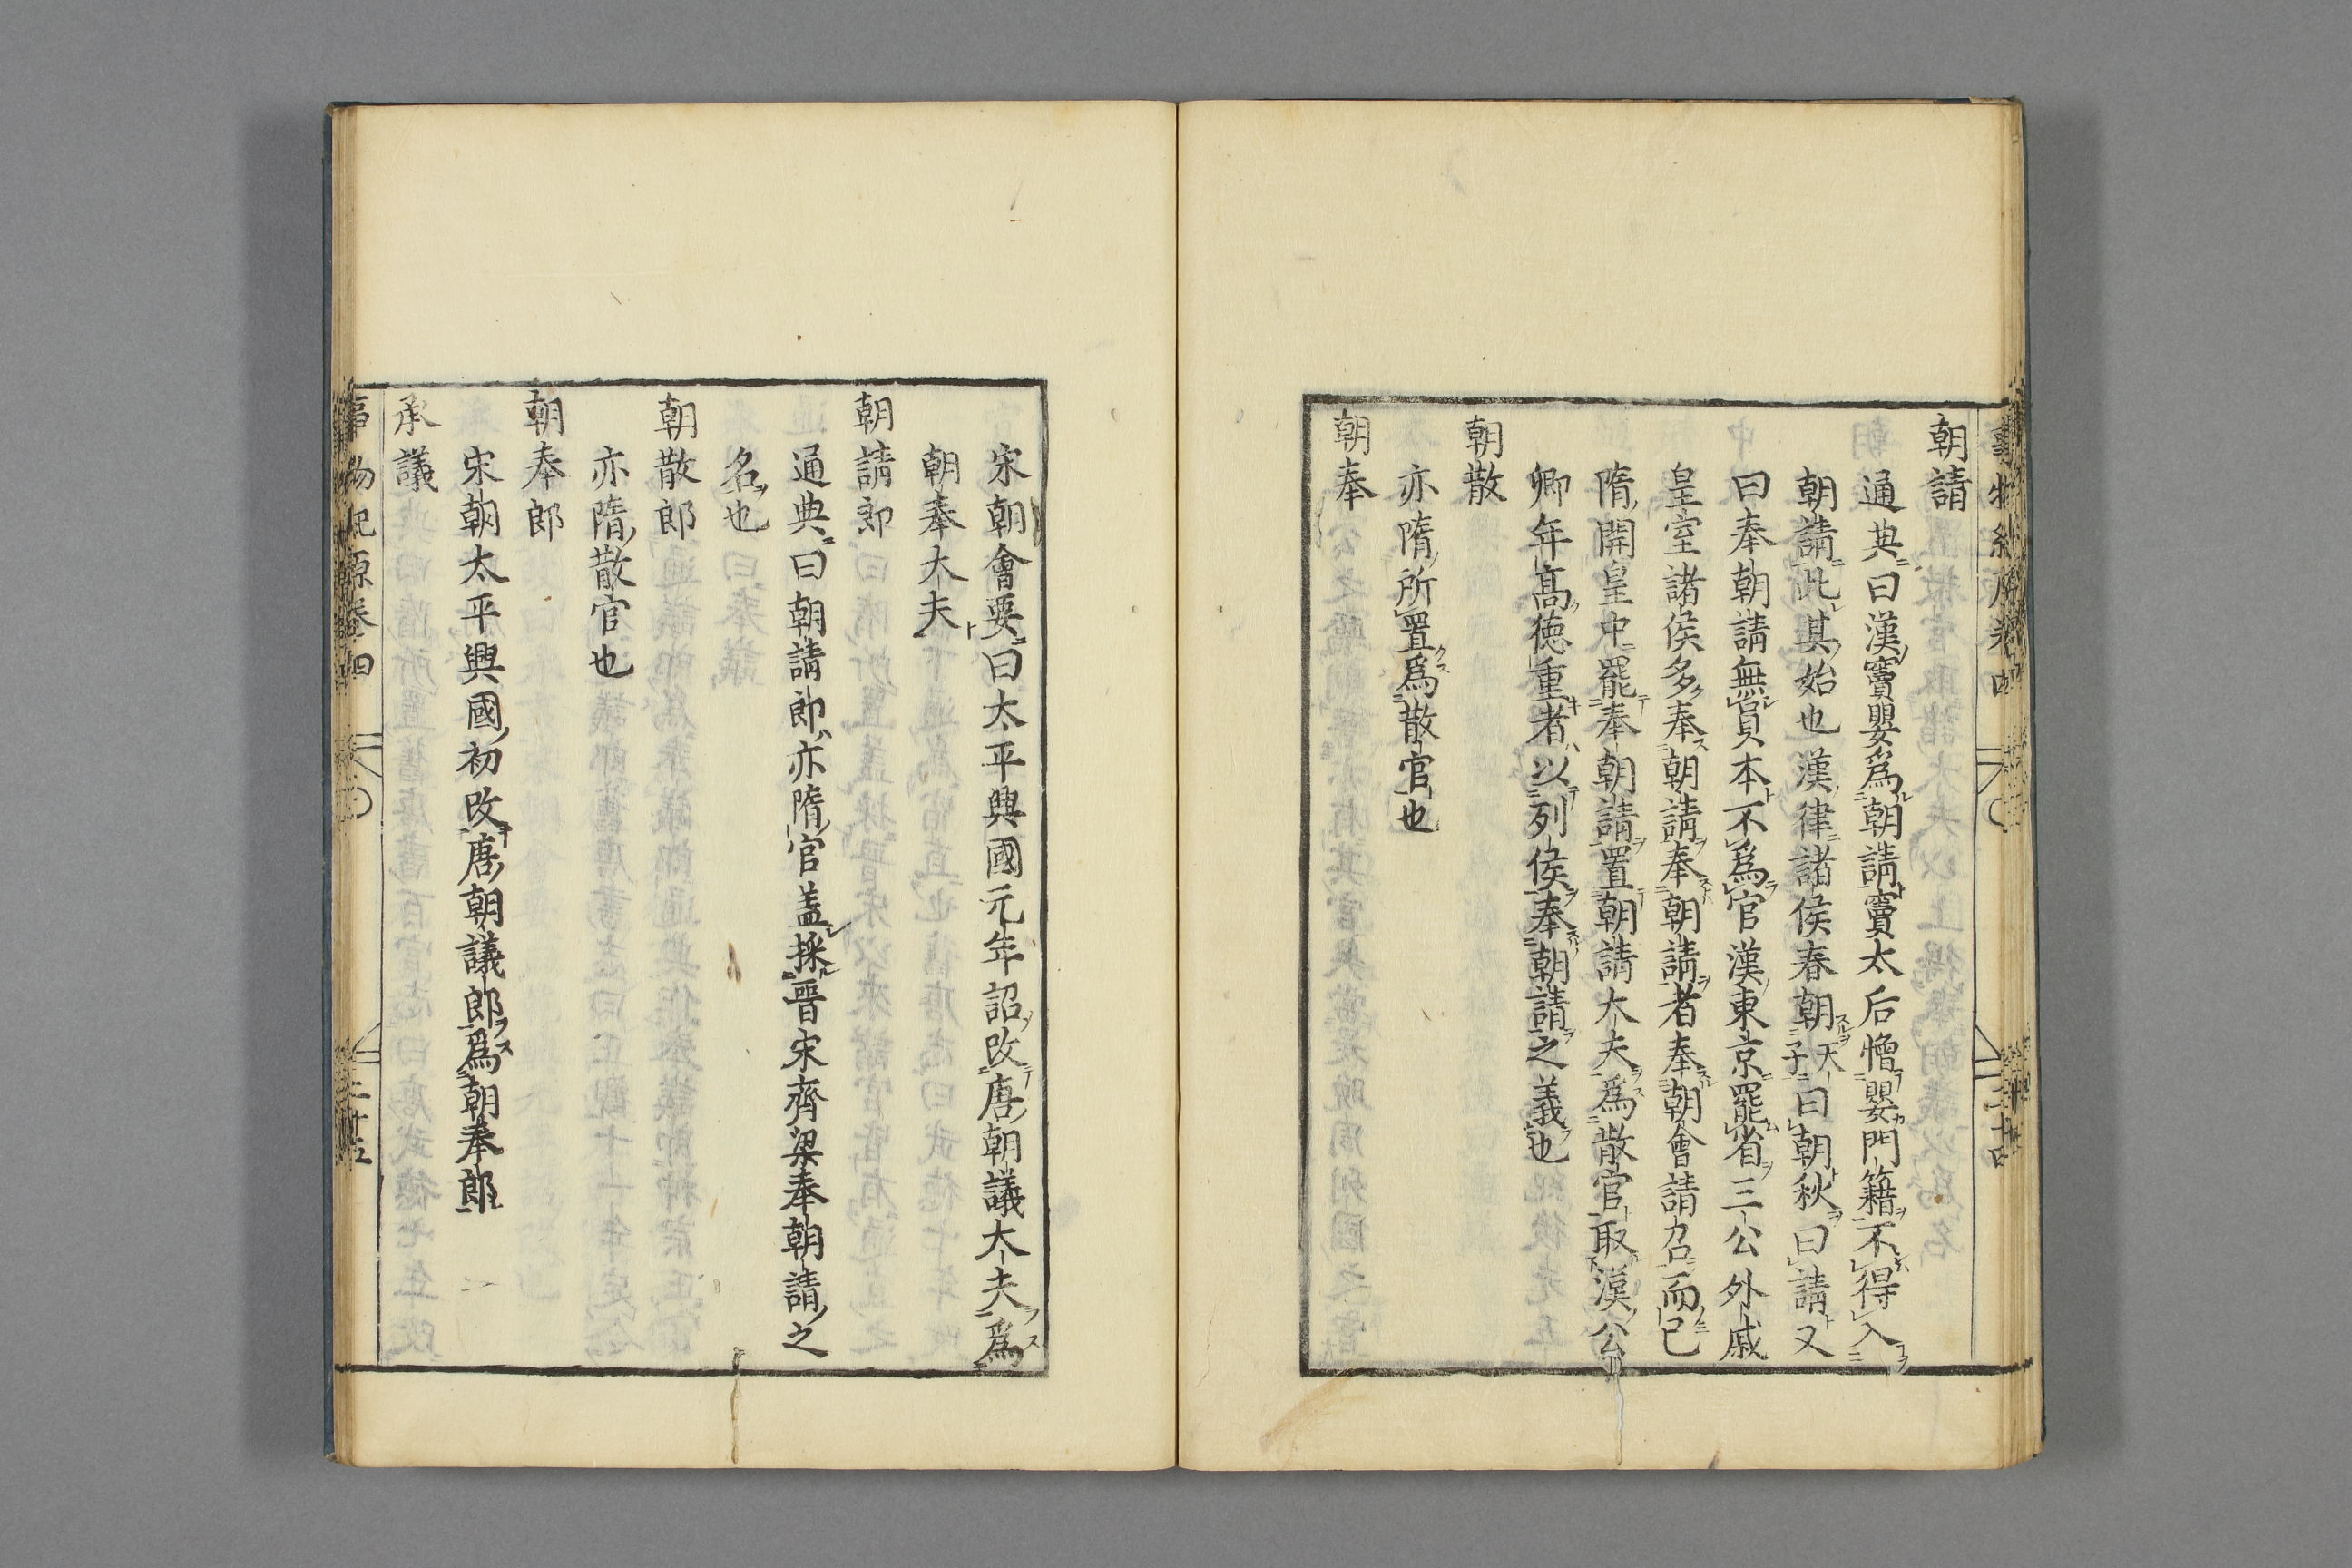 朝請
通典曰漢竇嬰爲朝請竇太后憎嬰門籍不得入
朝請此其始也漢律諸侯春朝天子曰朝秋曰請又
曰奉朝請無員本不爲官漢東京罷省三公外戚
皇室諸侯多奉朝請奉朝請者奉朝會請召而已
隋開皇中罷奉朝請置朝請大夫爲散官取漢公
卿年高徳重者以列侯奉朝請之義也
朝散
亦隋所置爲散官也
朝奉
宋朝會要曰太平興國元年詔改唐朝議大夫爲
朝奉大夫
朝請郎
通典曰朝請郎亦隋官盖採晋宋齊梁奉朝請之
名也
朝散郎
亦隋散官也
朝奉郎
宋朝太平興國初改唐朝議郎爲朝奉郎
承議
事物紀原卷四